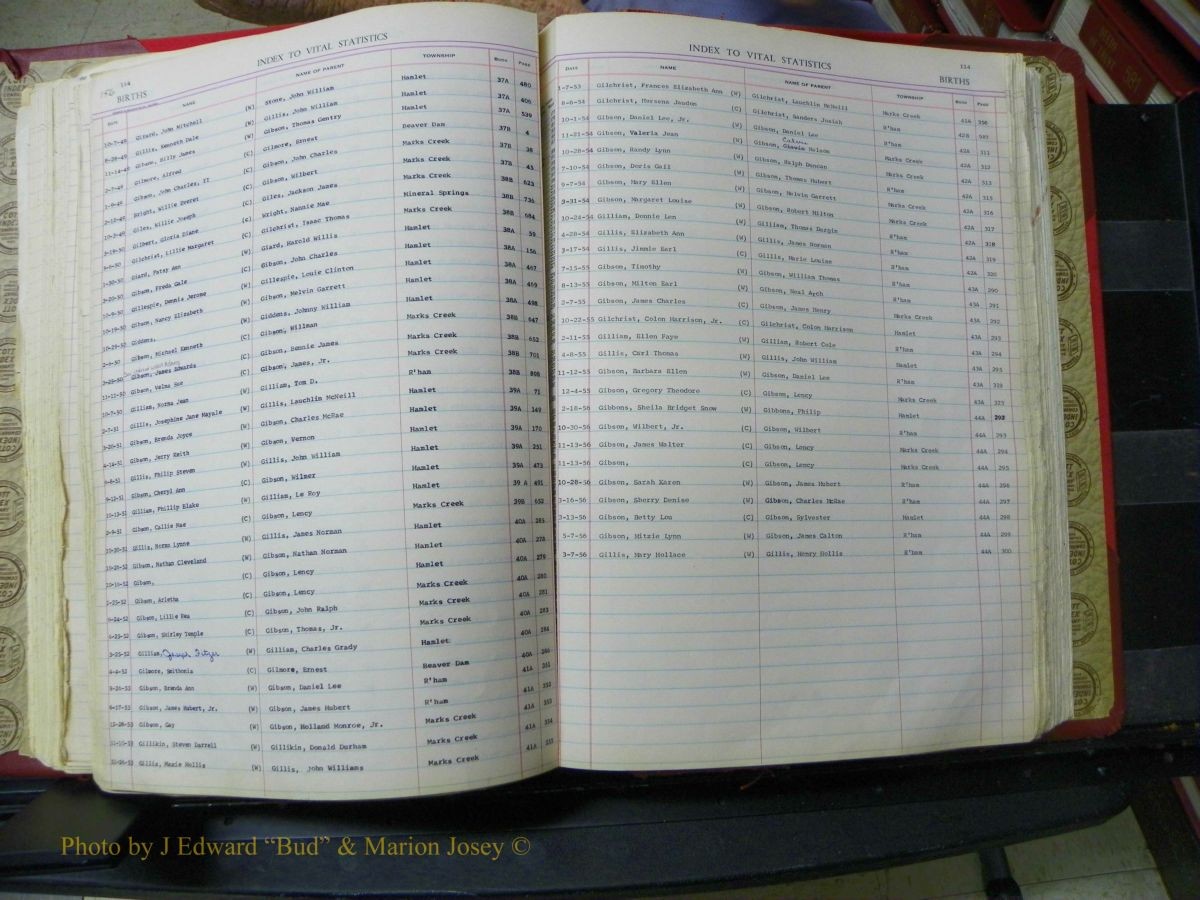 INDEX TO VITAL STATISTICS
114
BIRTHS
NAME NAME OF PARENT TOWNSHIP BOOK PAGE
10-7-49 Gitard, John Mitchell (W) Stone, John William Hamlet 37A 480
8-28-49 Gillis, Kenneth Dale (W) Gillis, John William Hamlet 37A 408
11-14-49 Gibson, Billy James (W) Gibson, Thomas Gentry Hamlet 37A 539
2-7-49 Gilmore, Alfred (C) Gilmore, Ernest Beaver Dam 37B 4
Gibson, John Charles, II (C) Gibson, John Charles Marks Creek 37B 38
Bright, Willie Everet (C) Gibson, Wilbert Marks Creek 37B 43
Giles, Willie Joseph (C) Giles, Jackson James Marks Creek 38B 623
Gilbert, Gloria Diane (C) Wright, Nannie Mae Mineral Springs 38B 736
Gilchrist, Lillie Margaret (C) Gilchrist, Isaac Thomas Marks Creek 38B 684
Giard, Patsy Ann (W) Giard, Harold Willis Hamlet 38A 59
Gibson, Freda Gale (C) Gibson, John Charles Hamlet 38A 156
Gillespie, Dennis Jerome (W) Gillespie, Louie Clinton Hamlet 38A 467
Gibson, Nancy Elizabeth (W) Gibson, Melvin Garrett Hamlet 38A 469
10-29-50 Giddens, (W) Giddens, Johnny William Hamlet 38A 498
Gibson, Michael Kenneth (C) Gibson, Willman Marks Creek 38B 647
Gibson, James Edwards (C) Gibson, Bonnie James Marks Creek 38B 652
Gibson, Velma Sue (C) Gibson, James, Jr. Marks Creek 38B 701
10-7-50 Gilliam, Norma Jean (W) Gilliam, Tom D. R'ham 38B 808
2-7-51 Gillis, Josephine Jane Mayale (W) Gillis, Lauchlin McNeill Hamlet 39A 71
Gibson, Brenda Joyce (W) Gibson, Charles McRae Hamlet 39A 149
4-14-51 Gibson, Jerry Keith (W) Gibson, Vernon Hamlet 39A 170
Gillis, Philip Steven (W) Gillis, John William Hamlet 39A 251
9-12-51 Gibson, Cheryl Ann (C) Gibson, Wilmer Hamlet 39A 473
10-13-51 Gilliam, Phillip Blake (W) Gilliam, Le Roy Hamlet 39 A 491
2-9-51 Gibson, Callie Mae (C) Gibson, Lency Marks Creek 39B 652
Gillis, Norma Lynne (W) Gillis, James Norman Hamlet 40A 285
Gibson, Nathan Cleveland (W) Gibson, Nathan Norman Hamlet 40A 278
Gibson, (C) Gibson, Lency Hamlet 40A 279
Gibson, Arletha (C) Gibson, Lency Marks Creek 40A 280
9-24-52 Gibson, Lillie Rea (C) Gibson, John Ralph Marks Creek 40A 281
6-25-52 Gibson, Shirley Temple (C) Gibson, Thomas, Jr. Marks Creek 40A 283
3-25-52 Gilliam, (W) Gilliam, Charles Grady Hamlet 40A 284
4-4-52 Gilmore, Smithonia (C) Gilmore, Ernest Beaver Dam 40A 286
Gibson, Brenda Ann (W) Gibson, Daniel Lee R'ham 41A 351
8-17-53 Gibson, James Hubert, Jr. (W) Gibson, James Hubert R'ham 41A 352
Gibson, Gay (W) Gibson, Holland Monroe, Jr. Marks Creek 41A 353
Gillikin, Steven Darrell (W) Gillikin, Donald Durham Marks Creek 41A 354
Gillis, Maxie Hollis (W) Gillis, John Williams Marks Creek 41A 355
INDEX TO VITAL STATISTICS
114
BIRTHS
DATE NAME NAME OF PARENT TOWNSHIP BOOK PAGE
1-7-53 Gilchrist, Frances Elizabeth Ann (W) Gilchrist, Lauchlin McNeill Marks Creek 41A 356
8-6-54 Gilchrist, Hursena Jaudon (C) Gilchrist, Sanders Josiah R'ham 42B 587
10-1-54 Gibson, Daniel Lee, Jr. (W) Gibson, Daniel Lee R'ham 42A 311
11-21-54 Gibson, Valeria Jean (W) Gibson, Calvin Nelson Marks Creek 42A 312
10-28-54 Gibson, Randy Lynn (W) Gibson, Ralph Duncan Marks Creek 42A 313
7-10-54 Gibson, Doris Gail (W) Gibson, Thomas Hubert R'ham 42A 315
9-7-54 Gibson, Mary Ellen (W) Gibson, Melvin Garrett Marks Creek 42A 316
8-31-54 Gibson, Margaret Louise (W) Gibson, Robert Hilton Marks Creek 42A 317
10-24-54 Gilliam, Donnie Len (W) Gilliam, Thomas Durgin R'ham 42A 318
4-28-54 Gillis, Elizabeth Ann (W) Gillis, James Norman R'ham 42A 319
3-17-54 Gillis, Jimmie Earl (C) Gillis, Marie Louise R'ham 42A 320
7-15-55 Gibson, Timothy (W) Gibson, William Thomas R'ham 43A 290
8-13-55 Gibson, Milton Earl (W) Gibson, Neal Arch R'ham 43A 291
2-7-55 Gibson, James Charles (C) Gibson, James Henry Marks Creek 43A 292
10-22-55 Gilchrist, Colon Harrison, Jr. (C) Gilchrist, Colon Harrison Hamlet 43A 293
2-11-55 Gilliam, Ellen Faye (W) Gilliam, Robert Cole R'ham 43A 294
4-8-55 Gillis, Carl Thomas (W) Gillis, John William Hamlet 43A 295
11-12-55 Gibson, Barbara Ellen (W) Gibson, Daniel Lee R'ham 43A 318
12-4-55 Gibson, Gregory Theodore (C) Gibson, Lency Marks Creek 43A 323
2-18-56 Gibbons, Sheila Bridget Snow (W) Gibbons, Philip Hamlet 44A 292
10-30-56 Gibson, Wilbert, Jr. (C) Gibson, Wilbert R'ham 44A 293
11-13-56 Gibson, James Walter (C) Gibson, Lency Marks Creek 44A 294
11-13-56 Gibson, (C) Gibson, Lency Marks Creek 44A 295
10-28-56 Gibson, Sarah Karen (W) Gibson, James Hubert R'ham 44A 296
3-16-56 Gibson, Sherry Denise (W) Gibson, Charles McRae R'ham 44A 297
3-13-56 Gibson, Betty Lou (C) Gibson, Sylvester Hamlet 44A 298
5-7-56 Gibson, Mitzie Lynn (W) Gibson, James Calton R'ham 44A 299
3-7-56 Gillis, Mary Hollace (W) Gillis, Henry Hollis R'ham 44A 300
Photo by J Edward "Bud" & Marion Josey ©